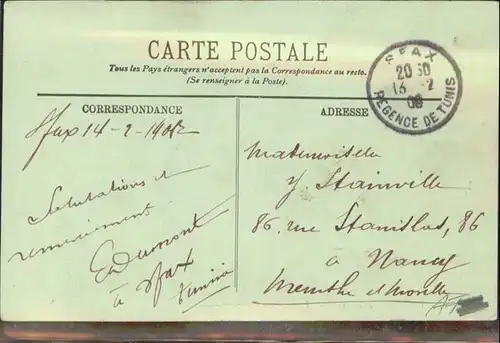 CARTE POSTALE
Tous les Pays étrangers n'acceptent pas la Correspondance au recto.
(Se renseigner à la Poste).
SFAX
20 30
13 -2
09
REGENCE DE TUNIS
CORRESPONDANCE
ADRESSE
Sfax 14-2-190
Salutations et
remerciement
à Sfax
Tunisie
Mademoiselle
Y. Stainville
86 rue Stanislas, 86
à Nancy
Meurthe et Moselle